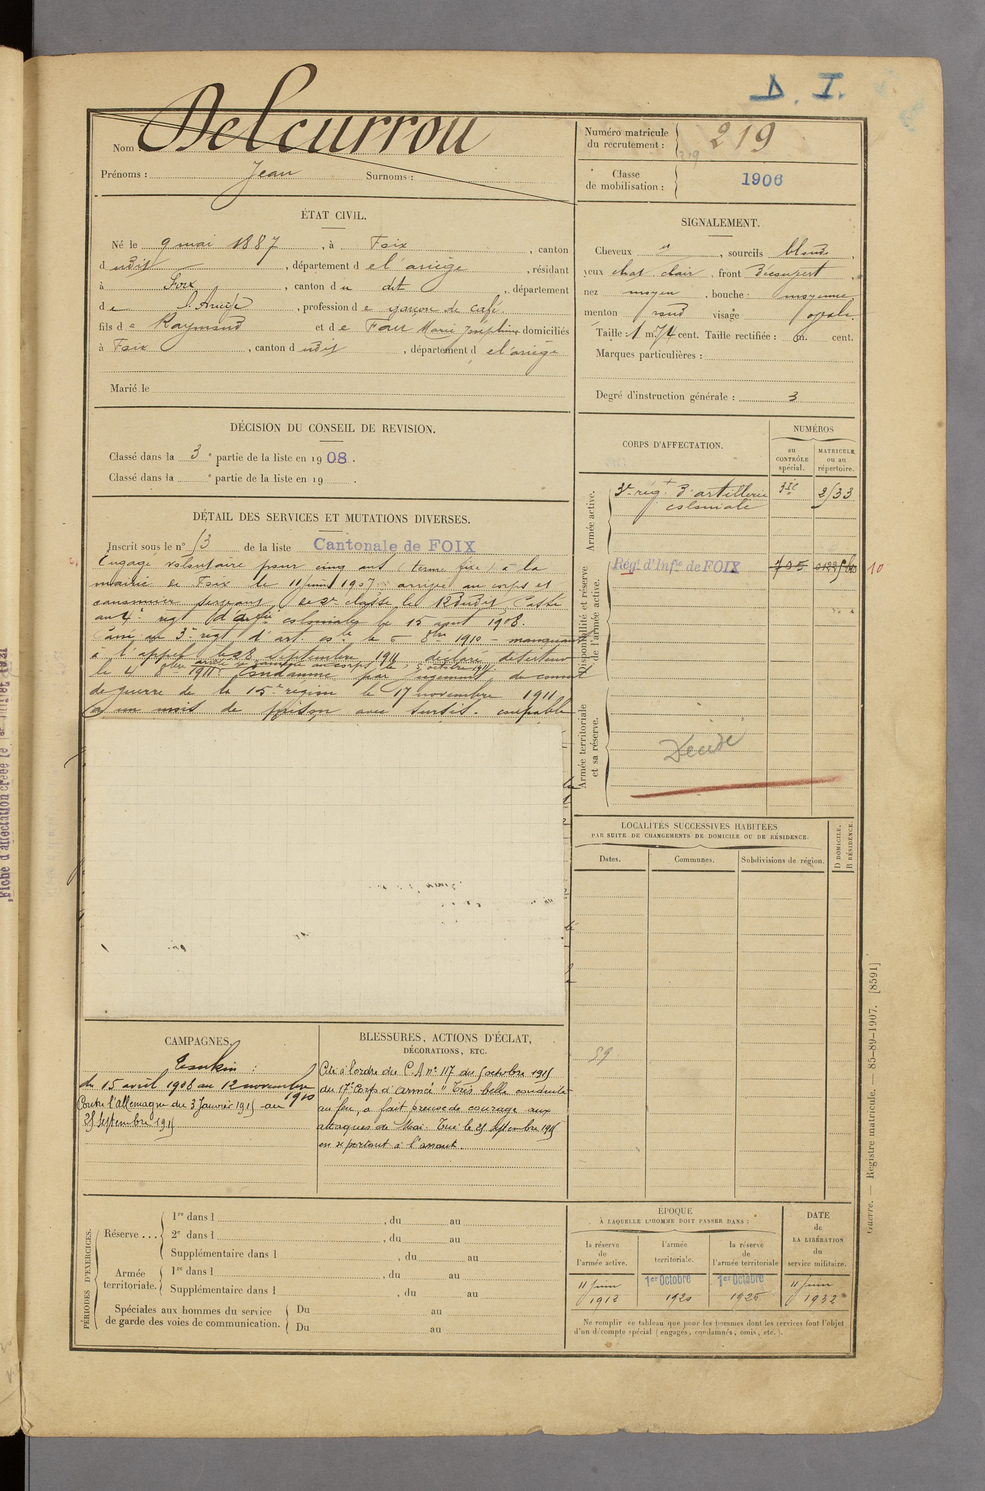 D. I.
Nom : Delcurrou
Prénoms : Jean Surnoms :
Numéro matricule du recrutement : 219
Classe de mobilisation : 1906
ÉTAT CIVIL.
Né le 9 mai 1887, à Foix, canton
dudit, département de l'ariège, résidant
à Foix, canton du dit, département
de l'Ariège, profession de garçon de café
fils de Raymond et de Fau Marie Joséphine domiciliés
à Foix, canton dudit, département de l'ariège
Marié le
SIGNALEMENT.
Cheveux , sourcils blonds
yeux chat clair, front découvert,
nez moyen, bouche moyenne
menton rond visage ovale
Taille : 1 m. 74 cent. Taille rectifiée : m. cent.
Marques particulières :
Degré d'instruction générale : 3
DÉCISION DU CONSEIL DE REVISION.
Classé dans la 3e partie de la liste en 1908.
Classé dans la e partie de la liste en 19 .
CORPS D'AFFECTATION.
NUMÉROS
au CONTRÔLE spécial.
MATRICULE ou au répertoire.
Armée active.
3e régt d'artillerie coloniale
2133
Disponibilité et réserve de l'armée active.
Régt d'Infie de FOIX
705
10
Armée territoriale et sa réserve.
Décédé
DÉTAIL DES SERVICES ET MUTATIONS DIVERSES.
Inscrit sous le n° 13 de la liste Cantonale de FOIX
Engagé volontaire pour cinq ans (terme fixe) à la
mairie de Foix le 11 juin 1907 arrivé au corps et
canonnier servant de 2e classe le 12 dudit. Passé
au 4e régt d'artie coloniale le 15 avril 1908.
au 3e régt d'art. cole le 1910 – manquant
à l'appel le 28 septembre 1911 déclaré déserteur
le 4 8bre 1911 arrivé au corps le 5 octobre 1911
Condamné par jugement de conseil
de guerre de la 15e région le 17 novembre 1911
à un mois de prison avec sursis. coupable
LOCALITÉS SUCCESSIVES HABITÉES
PAR SUITE DE CHANGEMENTS DE DOMICILE OU DE RÉSIDENCE.
Dates.
Communes.
Subdivisions de région.
D DOMICILE.
R RÉSIDENCE.
59
CAMPAGNES.
Tonkin :
du 15 avril 1908 au 12 novembre 1910
Contre l'allemagne du 3 Janvier 1915 au
25 Septembre 1915
BLESSURES, ACTIONS D'ÉCLAT,
DÉCORATIONS, ETC.
Cité à l'ordre du C.A n° 117 du 5 octobre 1915
du 17e Corps d'armée "Très belle conduite
au feu, a fait preuve de courage aux
attaques de Mai. Tué le 25 septembre 1915
en se portant à l'assaut.
PÉRIODES D'EXERCICES.
Réserve ...
1re dans l , du au
2e dans l , du au
Supplémentaire dans l , du au
Armée territoriale.
1re dans l , du au
Supplémentaire dans l , du au
Spéciales aux hommes du service de garde des voies de communication.
Du au
Du au
ÉPOQUE
À LAQUELLE L'HOMME DOIT PASSER DANS :
la réserve de l'armée active.
l'armée territoriale.
la réserve de l'armée territoriale
DATE de LA LIBÉRATION du service militaire.
11 juin 1912
1er Octobre 1920
1er Octobre 1926
11 juin 1932
Ne remplir ce tableau que pour les hommes dont les services font l'objet
d'un décompte spécial (engagés, condamnés, omis, etc.).
Guerre. — Registre matricule. — 85-89-1907. [8591]